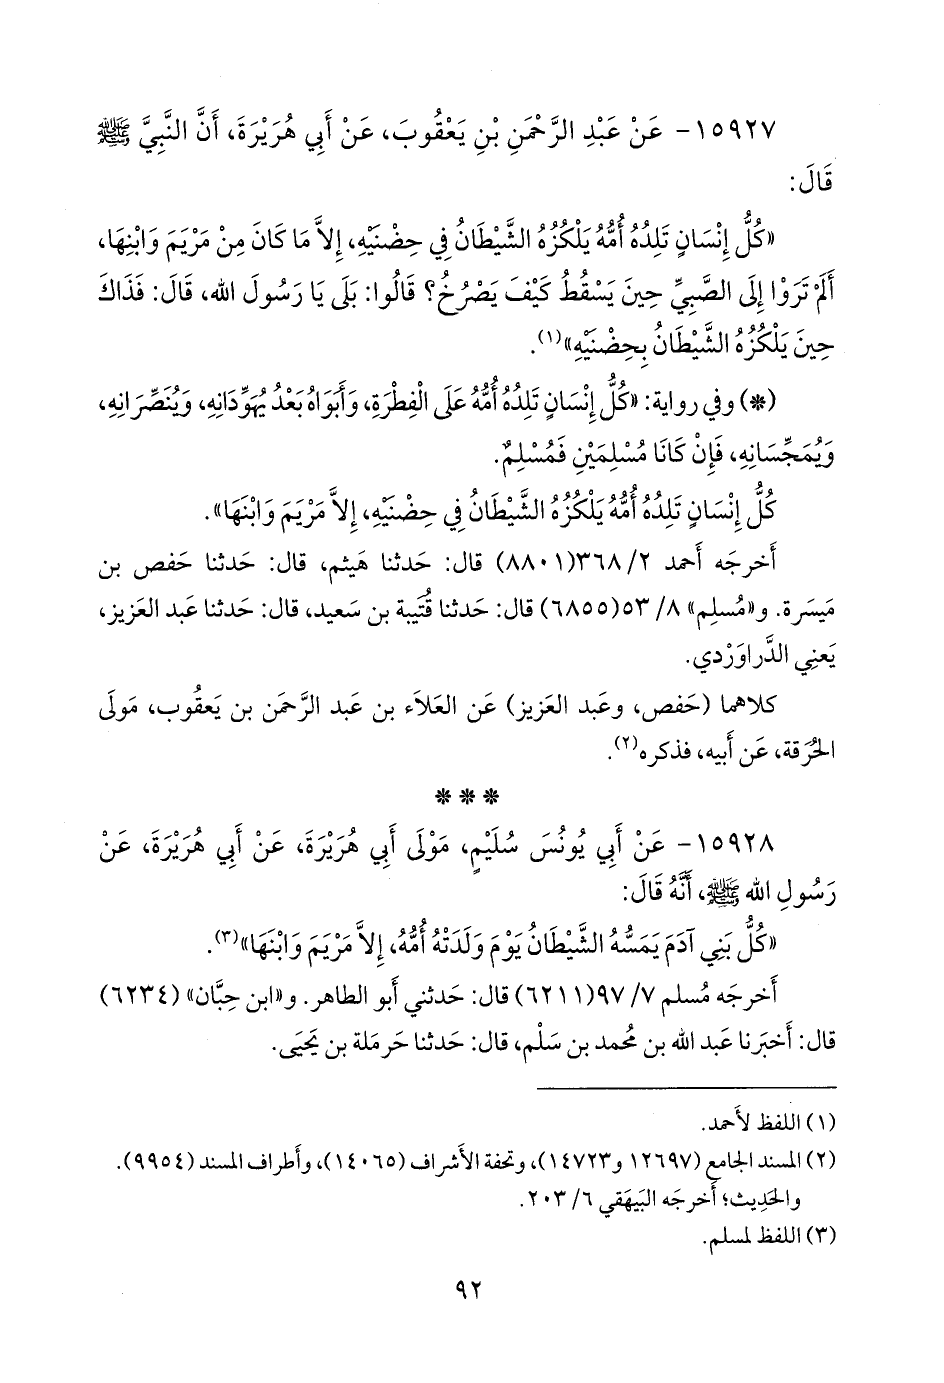 ١٥٩٢٧- عَنْ عَبْدِ الرَّحْمَنِ بْنِ يَعْقُوبَ، عَنْ أَبِي هُرَيْرَةَ، أَنَّ النَّبِيَّ ﷺ
قَالَ:
«كُلُّ إِنْسَانٍ تَلِدُهُ أُمُّهُ يَلْكُزُهُ الشَّيْطَانُ فِي حِضْنَيْهِ، إِلاَّ مَا كَانَ مِنْ مَرْيَمَ وَابْنِهَا،
أَلَمْ تَرَوْا إِلَى الصَّبِيِّ حِينَ يَسْقُطُ كَيْفَ يَصْرُخُ؟ قَالُوا: بَلَى يَا رَسُولَ الله، قَالَ: فَذَاكَ
حِينَ يَلْكُزُهُ الشَّيْطَانُ بِحِضْنَيْهِ»(١).
(*) وفي رواية: «كُلُّ إِنْسَانٍ تَلِدُهُ أُمُّهُ عَلَى الْفِطْرَةِ، وَأَبَوَاهُ بَعْدُ يُهَوِّدَانِهِ، وَيُنَصِّرَانِهِ،
وَيُمَجِّسَانِهِ، فَإِنْ كَانَا مُسْلِمَيْنِ فَمُسْلِمٌ.
كُلُّ إِنْسَانٍ تَلِدُهُ أُمُّهُ يَلْكُزُهُ الشَّيْطَانُ فِي حِضْنَيْهِ، إِلاَّ مَرْيَمَ وَابْنَهَا».
أَخرجَه أَحمد ٢/ ٣٦٨(٨٨٠١) قال: حَدثنا هَيثم، قال: حَدثنا حَفص بن
مَيسَرة. و«مُسلِم» ٨/ ٥٣(٦٨٥٥) قال: حَدثنا قُتَيبة بن سَعيد، قال: حَدثنا عَبد العَزيز،
يَعنِي الدَّراوَرْدي.
كلاهما (حَفص، وعَبد العَزيز) عَن العَلاَء بن عَبد الرَّحمَن بن يَعقُوب، مَولَى
الحُرَقة، عَن أَبيه، فذكره(٢).
* * *
١٥٩٢٨- عَنْ أَبِي يُونُسَ سُلَيْمٍ، مَوْلَى أَبِي هُرَيْرَةَ، عَنْ أَبِي هُرَيْرَةَ، عَنْ
رَسُولِ الله ﷺ، أَنَّهُ قَالَ:
«كُلُّ بَنِي آدَمَ يَمَسُّهُ الشَّيْطَانُ يَوْمَ وَلَدَتْهُ أُمُّهُ، إِلاَّ مَرْيَمَ وَابْنَهَا»(٣).
أَخرجَه مُسلم ٧/ ٩٧(٦٢١١) قال: حَدثني أَبو الطاهر. و«ابن حِبَّان» (٦٢٣٤)
قال: أَخبَرنا عَبد الله بن مُحمد بن سَلْم، قال: حَدثنا حَرمَلة بن يَحيَى.
(١) اللفظ لأَحمد.
(٢) المسند الجامع (١٢٦٩٧ و١٤٧٢٣)، وتحفة الأَشراف (١٤٠٦٥)، وأَطراف المسند (٩٩٥٤).
والحَدِيث؛ أَخرجَه البَيهَقي ٦/ ٢٠٣.
(٣) اللفظ لمسلم.
٩٢